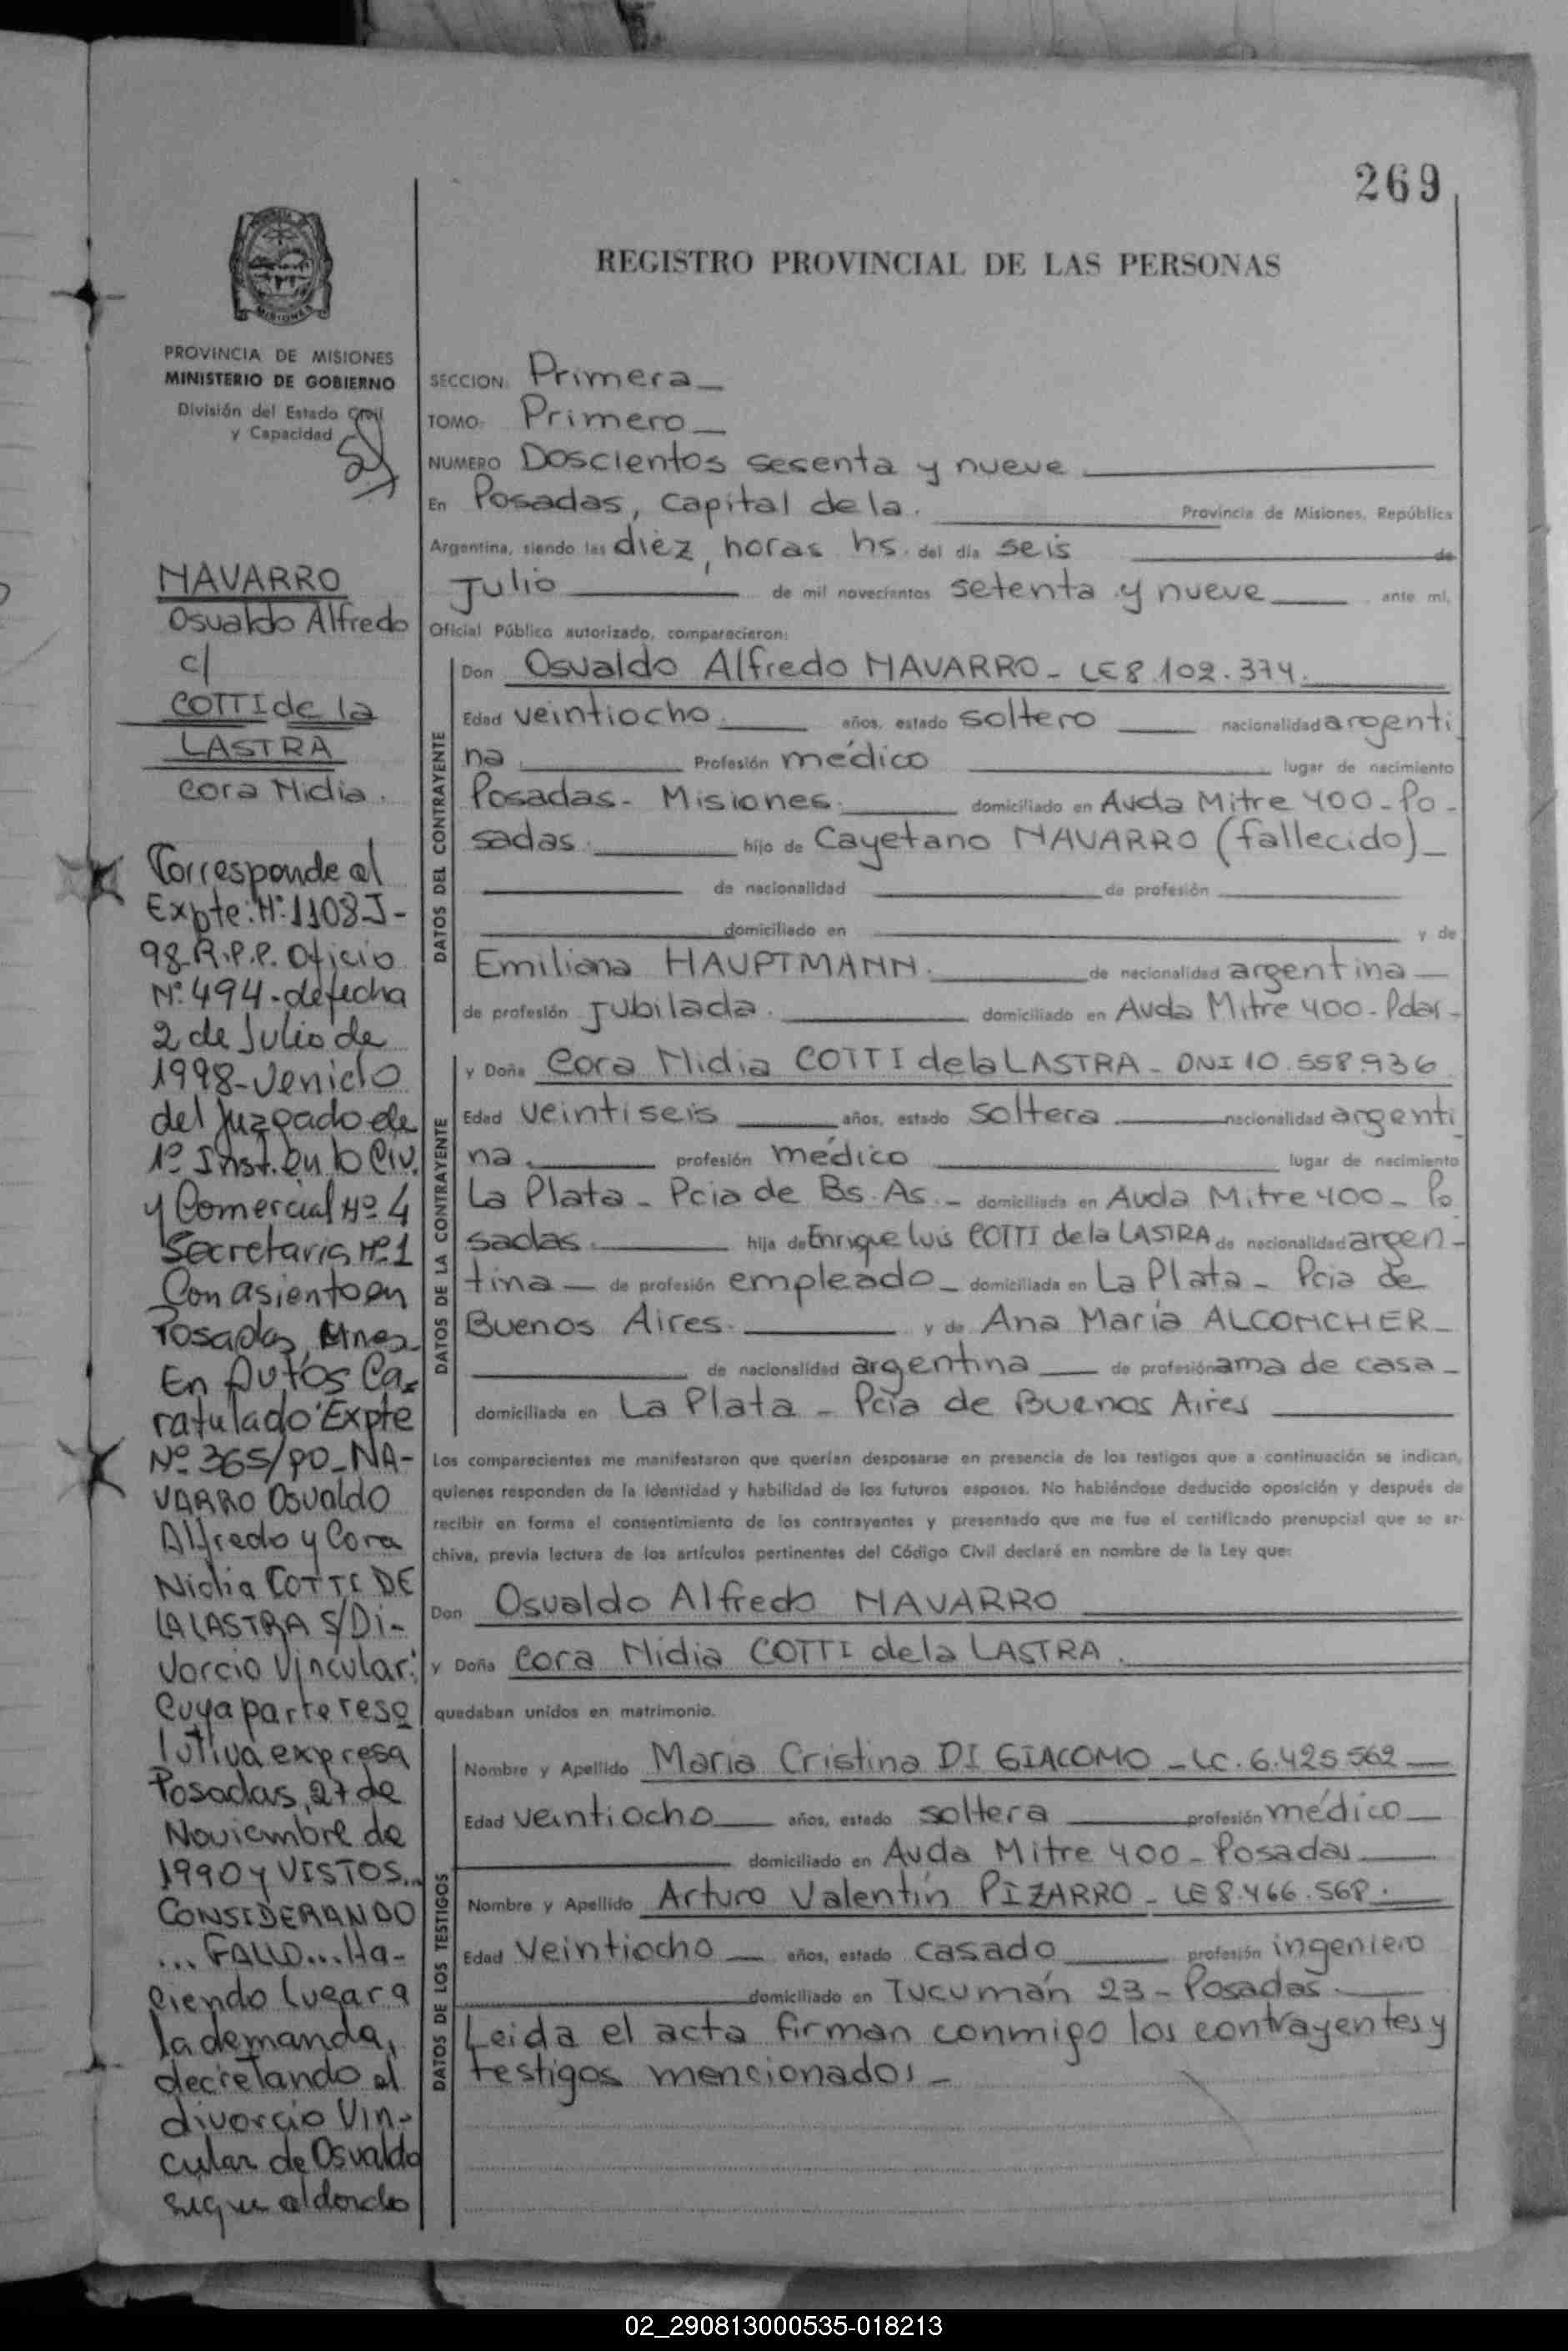 269
REGISTRO PROVINCIAL DE LAS PERSONAS
MISIONES
PROVINCIA DE MISIONES
MINISTERIO DE GOBIERNO
División del Estado Civil
y Capacidad
NAVARRO
Osvaldo Alfredo
c/
COTTI de la
LASTRA
Cora Nidia.
Corresponde al
Expte: Nº 1108-J-
98-R.P.P. Oficio
Nº 494-de fecha
2 de Julio de
1998-venido
del Juzgado de
1º Inst. en lo Civ.
y Comercial Nº 4
Secretaria Nº 1
Con asiento en
Posadas, Mnes
En Autos Ca-
ratulado "Expte
Nº 365/90-NA-
VARRO Osvaldo
Alfredo y Cora
Nidia COTTI DE
LA LASTRA S/Di-
vorcio Vincular:
Cuya parte reso
lutiva expresa
Posadas, 27 de
Noviembre de
1990 y VISTOS...
CONSIDERANDO
... FALLO... Ha-
ciendo lugar a
la demanda,
decretando el
divorcio Vin-
cular de Osvaldo
sigue al dorso
SECCION: Primera_
TOMO: Primero_
NUMERO Doscientos sesenta y nueve
En Posadas, capital de la. Provincia de Misiones, República
Argentina, siendo las diez, horas hs. del día seis de
Julio de mil novecientos setenta y nueve ante mí,
Oficial Público autorizado, comparecieron:
DATOS DEL CONTRAYENTE
Don Osvaldo Alfredo NAVARRO - LE 8.102.374.
Edad veintiocho. años, estado soltero nacionalidad argenti
na. Profesión médico lugar de nacimiento
Posadas- Misiones. domiciliado en Avda Mitre 400-Po-
sadas. hijo de Cayetano NAVARRO (fallecido)_
de nacionalidad de profesión
domiciliado en y de
Emiliana HAUPTMANN. de nacionalidad argentina
de profesión jubilada. domiciliado en Avda Mitre 400-Pdas-
DATOS DE LA CONTRAYENTE
y Doña Cora Nidia COTTI de la LASTRA - DNI 10.558.936
Edad veintiseis años, estado soltera nacionalidad argenti
na. profesión médico lugar de nacimiento
La Plata - Pcia de Bs. As.- domiciliada en Avda Mitre 400-Po
sadas. hija de Enrique Luis COTTI de la LASTRA de nacionalidad argen-
tina de profesión empleado- domiciliada en La Plata - Pcia de
Buenos Aires. y de Ana María ALCONCHER-
de nacionalidad argentina de profesión ama de casa-
domiciliada en La Plata - Pcia de Buenos Aires
Los comparecientes me manifestaron que querían desposarse en presencia de los testigos que a continuación se indican,
quienes responden de la identidad y habilidad de los futuros esposos. No habiéndose deducido oposición y después de
recibir en forma el consentimiento de los contrayentes y presentado que me fue el certificado prenupcial que se ar-
chiva, previa lectura de los artículos pertinentes del Código Civil declaré en nombre de la Ley que:
Don Osvaldo Alfredo NAVARRO
y Doña Cora Nidia COTTI de la LASTRA.
quedaban unidos en matrimonio.
DATOS DE LOS TESTIGOS
Nombre y Apellido María Cristina DI GIACOMO - LC. 6.425.562
Edad veintiocho años, estado soltera profesión médico
domiciliado en Avda Mitre 400-Posadas
Nombre y Apellido Arturo Valentín PIZARRO - LE 8.466.568.
Edad veintiocho años, estado casado profesión ingeniero
domiciliado en Tucumán 23 - Posadas.
Leida el acta firman conmigo los contrayentes y
testigos mencionados-
02_290813000535-018213